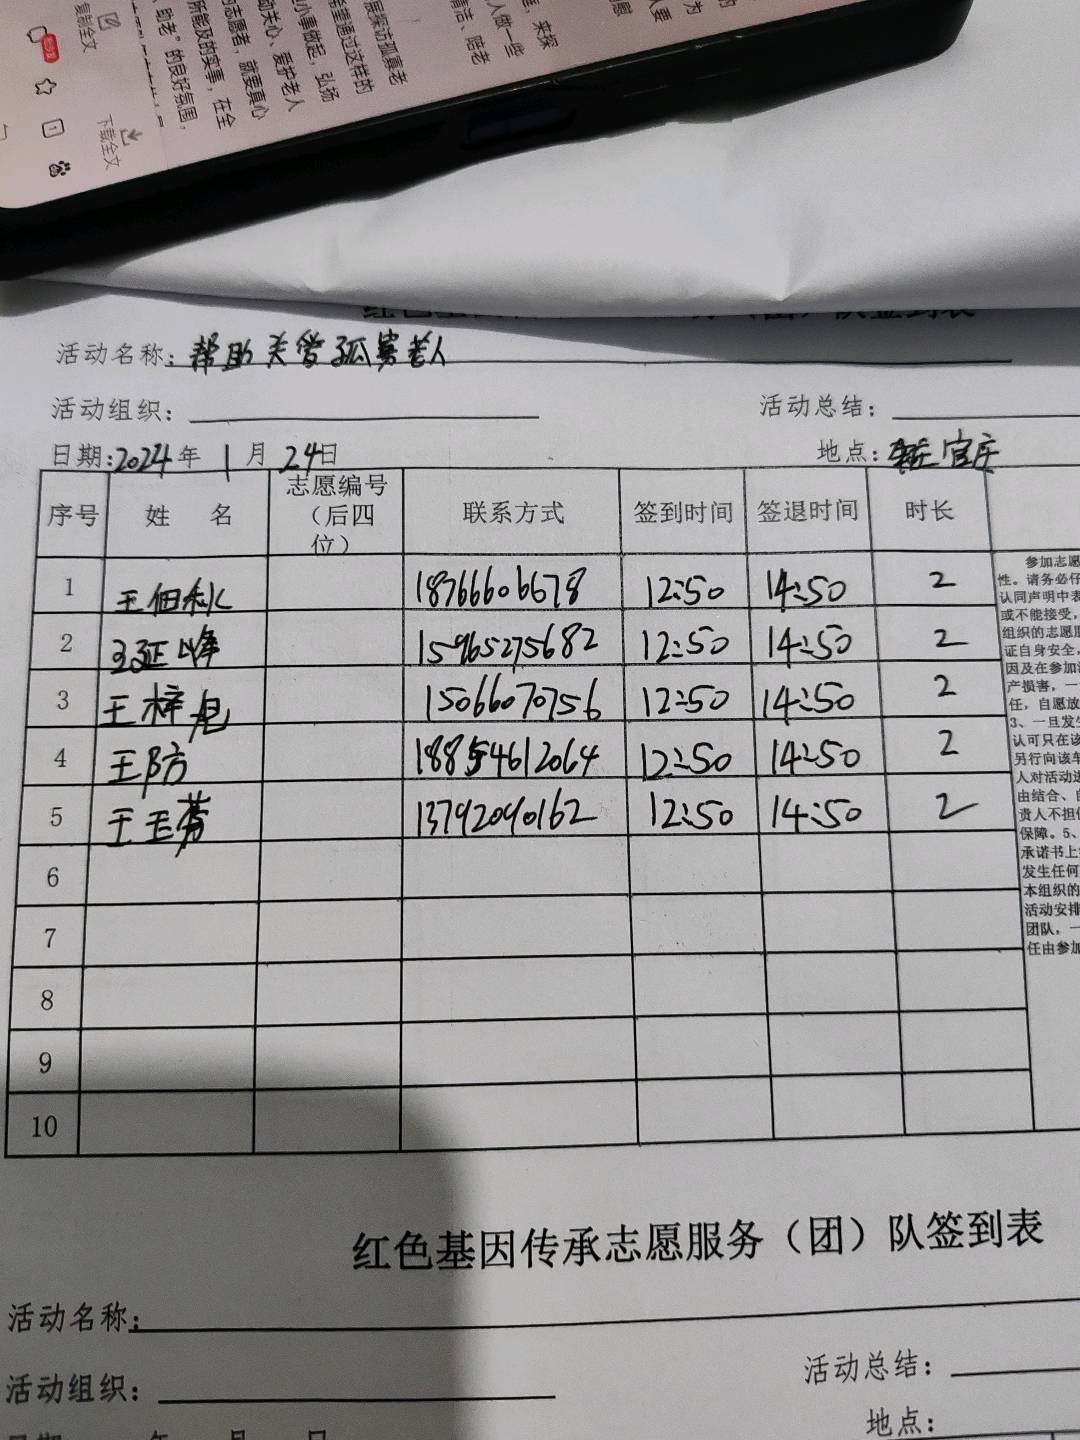 复制全文
下载全文
助老”的良好氛围，
所能及的实事，在全
的志愿者，就要真心
动关心、爱护老人
小事做起，弘扬
希望通过这样的
人做一些
红色基因
队签到表
活动名称：帮助关爱孤寡老人
活动组织：
活动总结：
日期：2024年1月24日
地点：官庄
序号 姓 名 志愿编号（后四位） 联系方式 签到时间 签退时间 时长
1 王佃秋 18766606678 12:50 14:50 2
2 王延峰 15965275682 12:50 14:50 2
3 王梓 15066070756 12:50 14:50 2
4 王防 18854612064 12:50 14:50 2
5 王玉芳 13792090162 12:50 14:50 2
6
7
8
9
10
参加志愿
性。请务必仔
认同声明中表
或不能接受，
组织的志愿服
证自身安全，
因及在参加活
产损害，一
任，自愿放
3、一旦发生
认可只在该
另行向该车
人对活动进
由结合、自
责人不担任
保障。5、
承诺书上
发生任何
本组织的
活动安排
团队，一
任由参加
红色基因传承志愿服务（团）队签到表
活动名称：
活动组织：
活动总结：
地点：